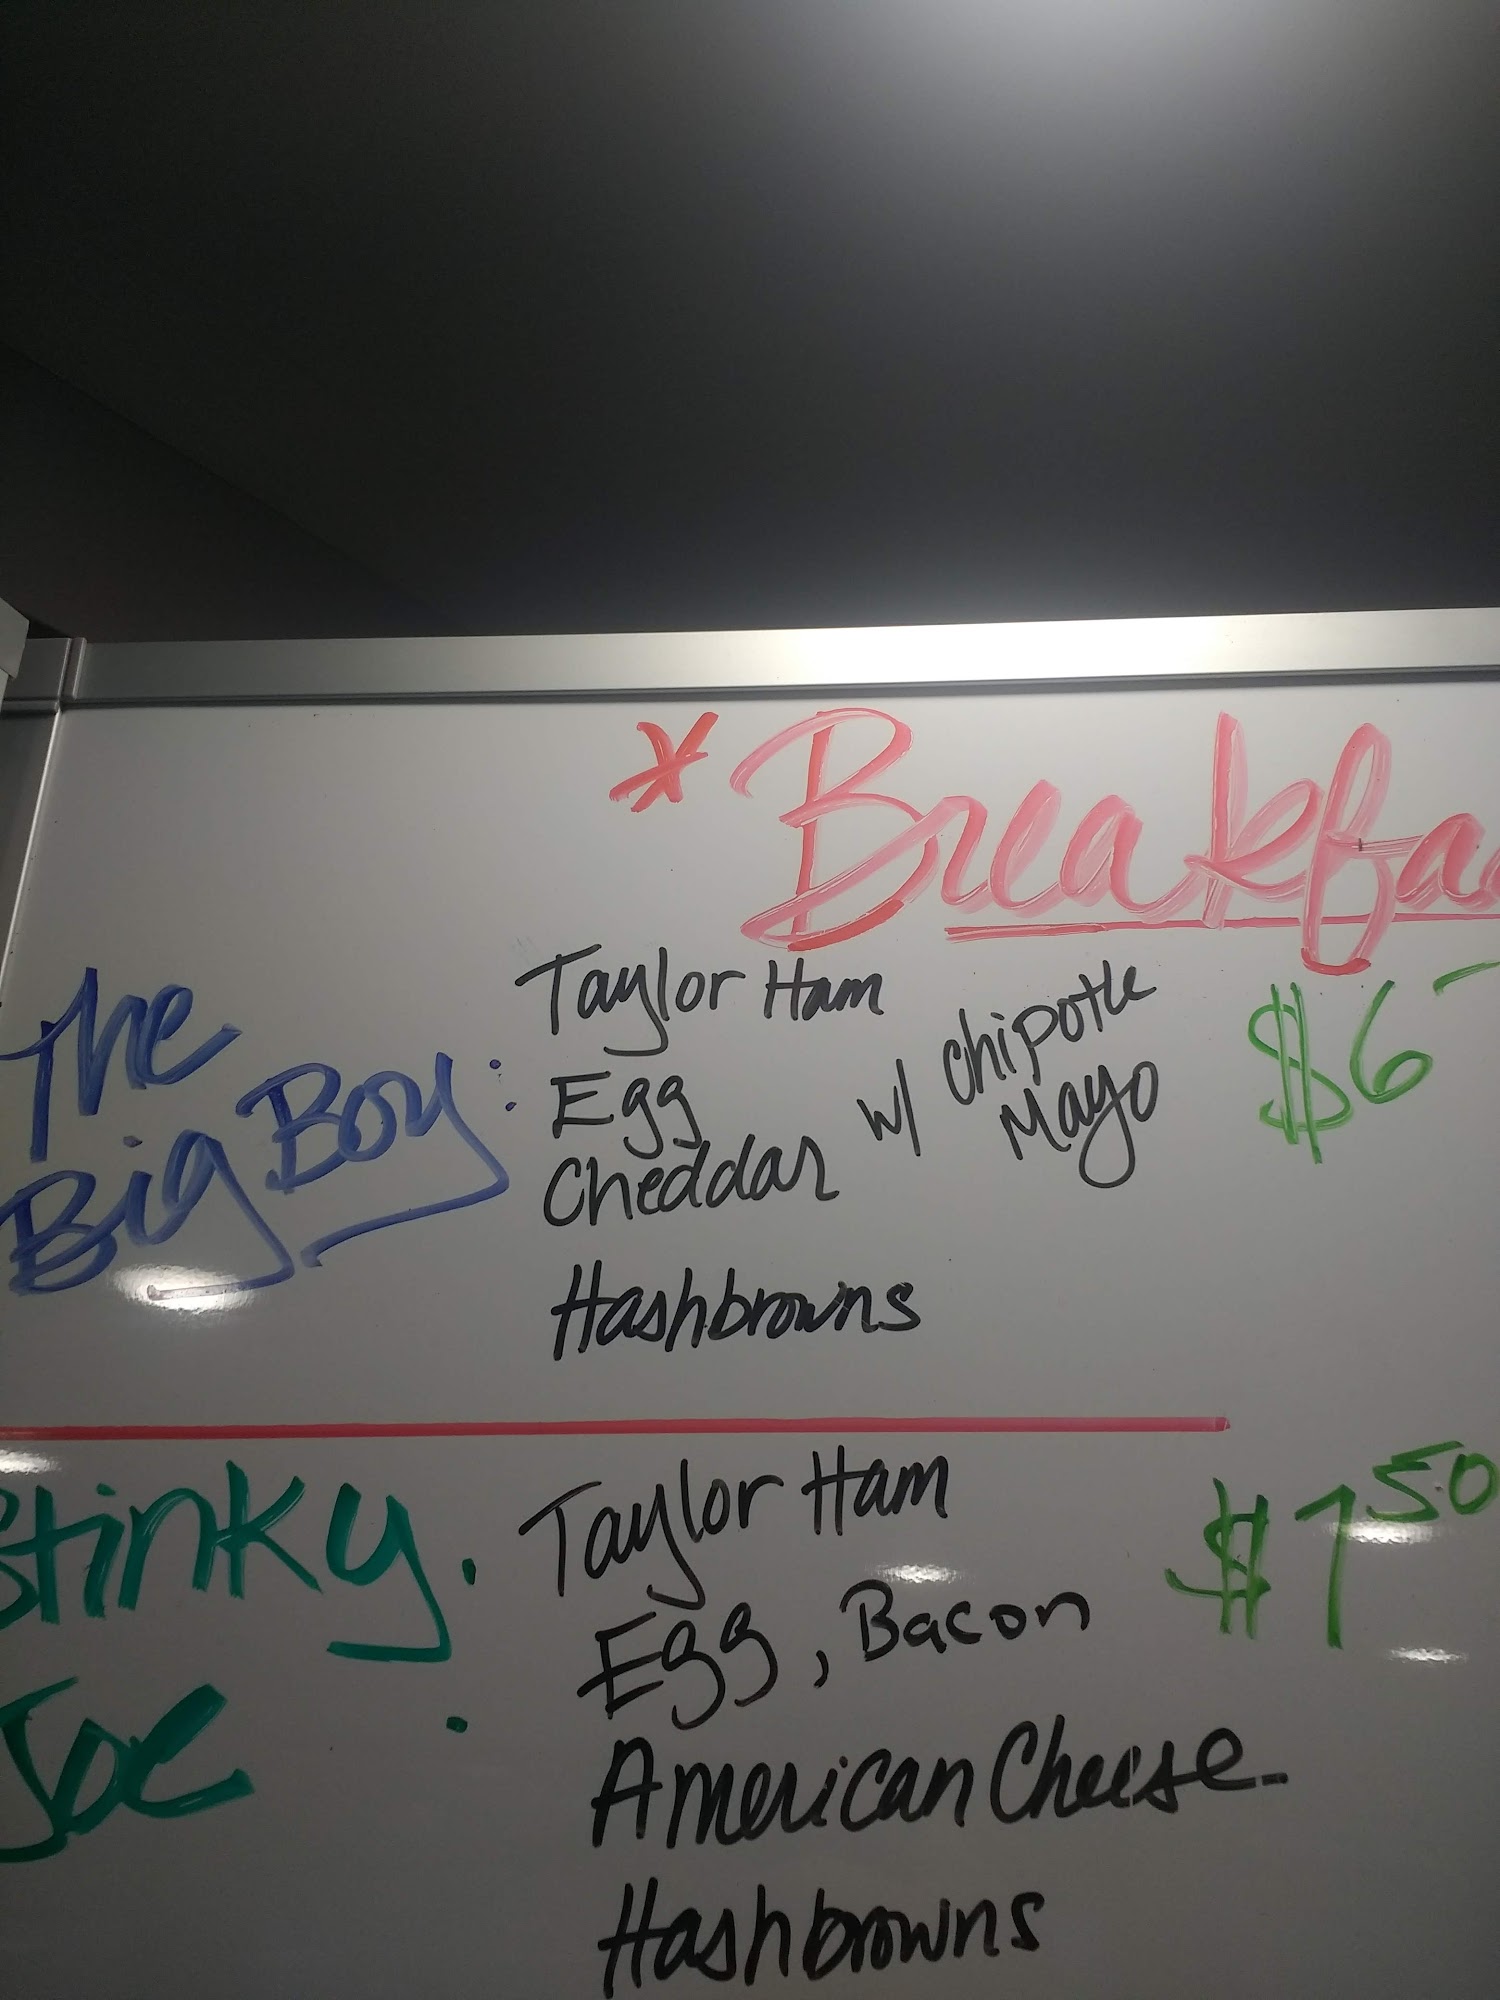 * Breakfas
The
Big Boy:
Taylor Ham
Egg
Cheddar
w/ Chipotle
Mayo
Hashbrowns
$6
Stinky
Joe :
Taylor Ham
Egg, Bacon
American Cheese
Hashbrowns
$7 50